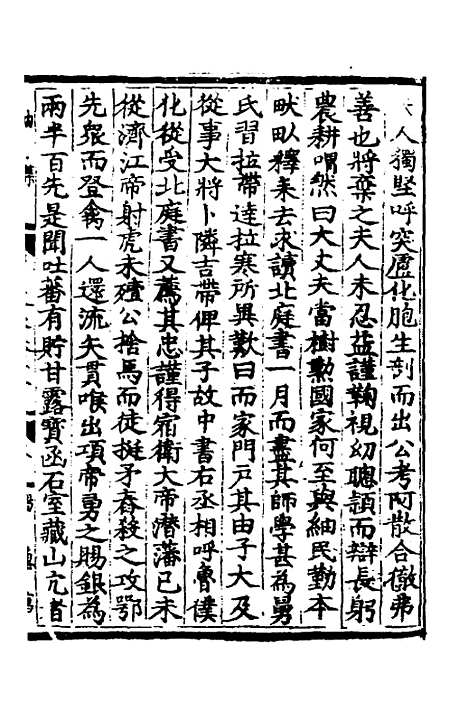 人獨堅呼突廬化胞生剖而出公考阿散合撤弗
善也將棄之夫人未忍益謹鞠視幼聰頴而辯長躬
農耕喟然曰大丈夫當樹勲國家何至與細民勤本
畎畒釋耒去求讀北庭書一月而盡其師學甚為舅
氏習拉帶達拉寒所異歎曰而家門戸其由子大及
從事大將卜隣吉帶俾其子故中書右丞相呼魯僕
化從受北庭書又薦其忠謹得宿衛大帝潜藩已未
從濟江帝射虎未殪公捨馬而徒挺矛舂殺之攻鄂
先衆而登禽一人還流矢貫喉出項帝勇之賜銀為
兩半百先是聞吐蕃有貯甘露寳函石室藏山亢者